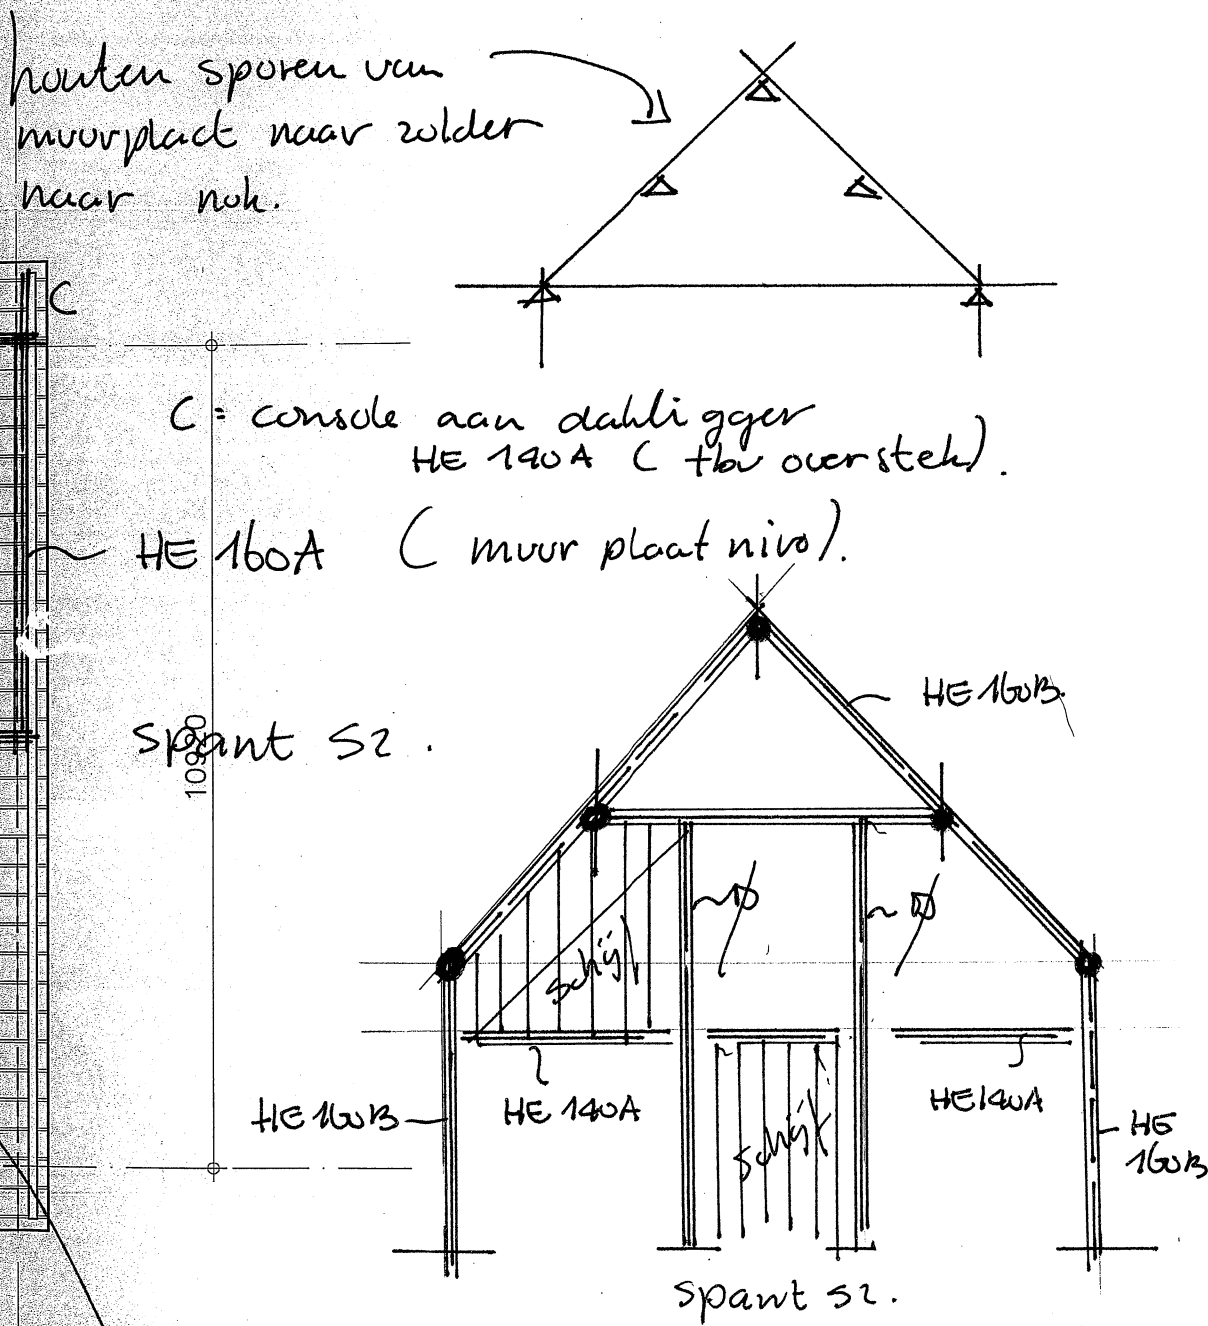 houten sporen van
muurplaat naar zolder
naar nok.
C
C = console aan dakligger
HE 140A ( tbv overstek).
HE 160A ( muurplaat nivo).
HE 160B.
spant S2.
10980
schijf
HE 160B
HE 140A
schijf
HE 140A
HE
160B
spant S2.